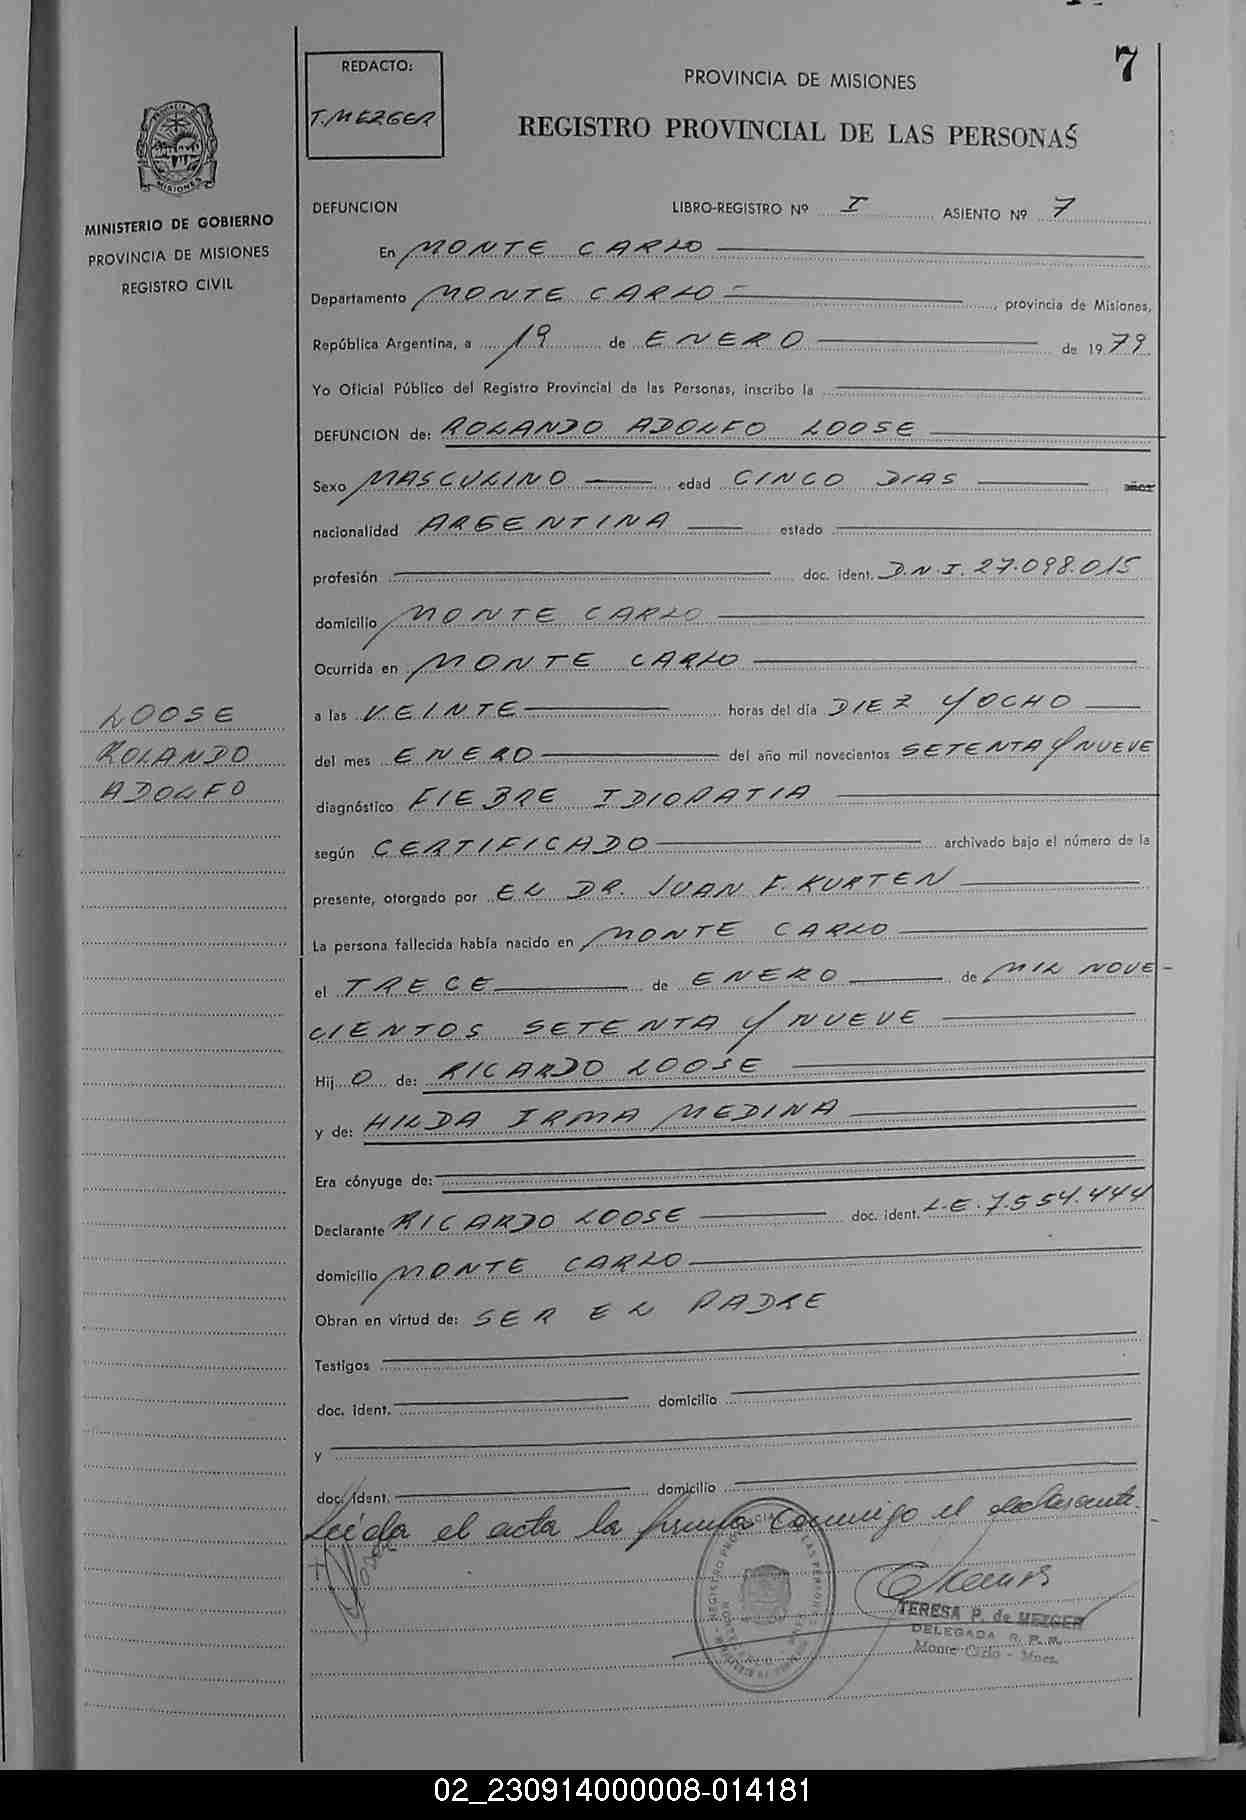 7
REDACTO:
T. MEZGER
PROVINCIA DE MISIONES
REGISTRO PROVINCIAL DE LAS PERSONAS
PROVINCIA DE
MISIONES
MINISTERIO DE GOBIERNO
PROVINCIA DE MISIONES
REGISTRO CIVIL
DEFUNCION LIBRO-REGISTRO Nº I ASIENTO Nº 7
En MONTE CARLO
Departamento MONTE CARLO, provincia de Misiones,
República Argentina, a 19 de ENERO de 1979
Yo Oficial Público del Registro Provincial de las Personas, inscribo la
DEFUNCION de: ROLANDO ADOLFO LOOSE
Sexo MASCULINO edad CINCO DIAS años
nacionalidad ARGENTINA estado
profesión doc. ident. D.N.I. 27.098.015
domicilio MONTE CARLO
Ocurrida en MONTE CARLO
a las VEINTE horas del día DIEZ Y OCHO
del mes ENERO del año mil novecientos SETENTA Y NUEVE
diagnóstico FIEBRE IDIOPATIA
según CERTIFICADO archivado bajo el número de la
presente, otorgado por EL DR. JUAN F. KURTEN
La persona fallecida había nacido en MONTE CARLO
el TRECE de ENERO de MIL NOVE-
CIENTOS SETENTA Y NUEVE
Hij O de: RICARDO LOOSE
y de: HILDA IRMA MEDINA
Era cónyuge de:
Declarante RICARDO LOOSE doc. ident. L.E. 7.554.444
domicilio MONTE CARLO
Obran en virtud de: SER EL PADRE
Testigos
doc. ident. domicilio
y
doc. ident. domicilio
Leída el acta la firma conmigo el declarante.
LOOSE
ROLANDO
ADOLFO
TERESA P. de MEZGER
DELEGADA R. P. P.
Monte Carlo - Mnes.
02_230914000008-014181